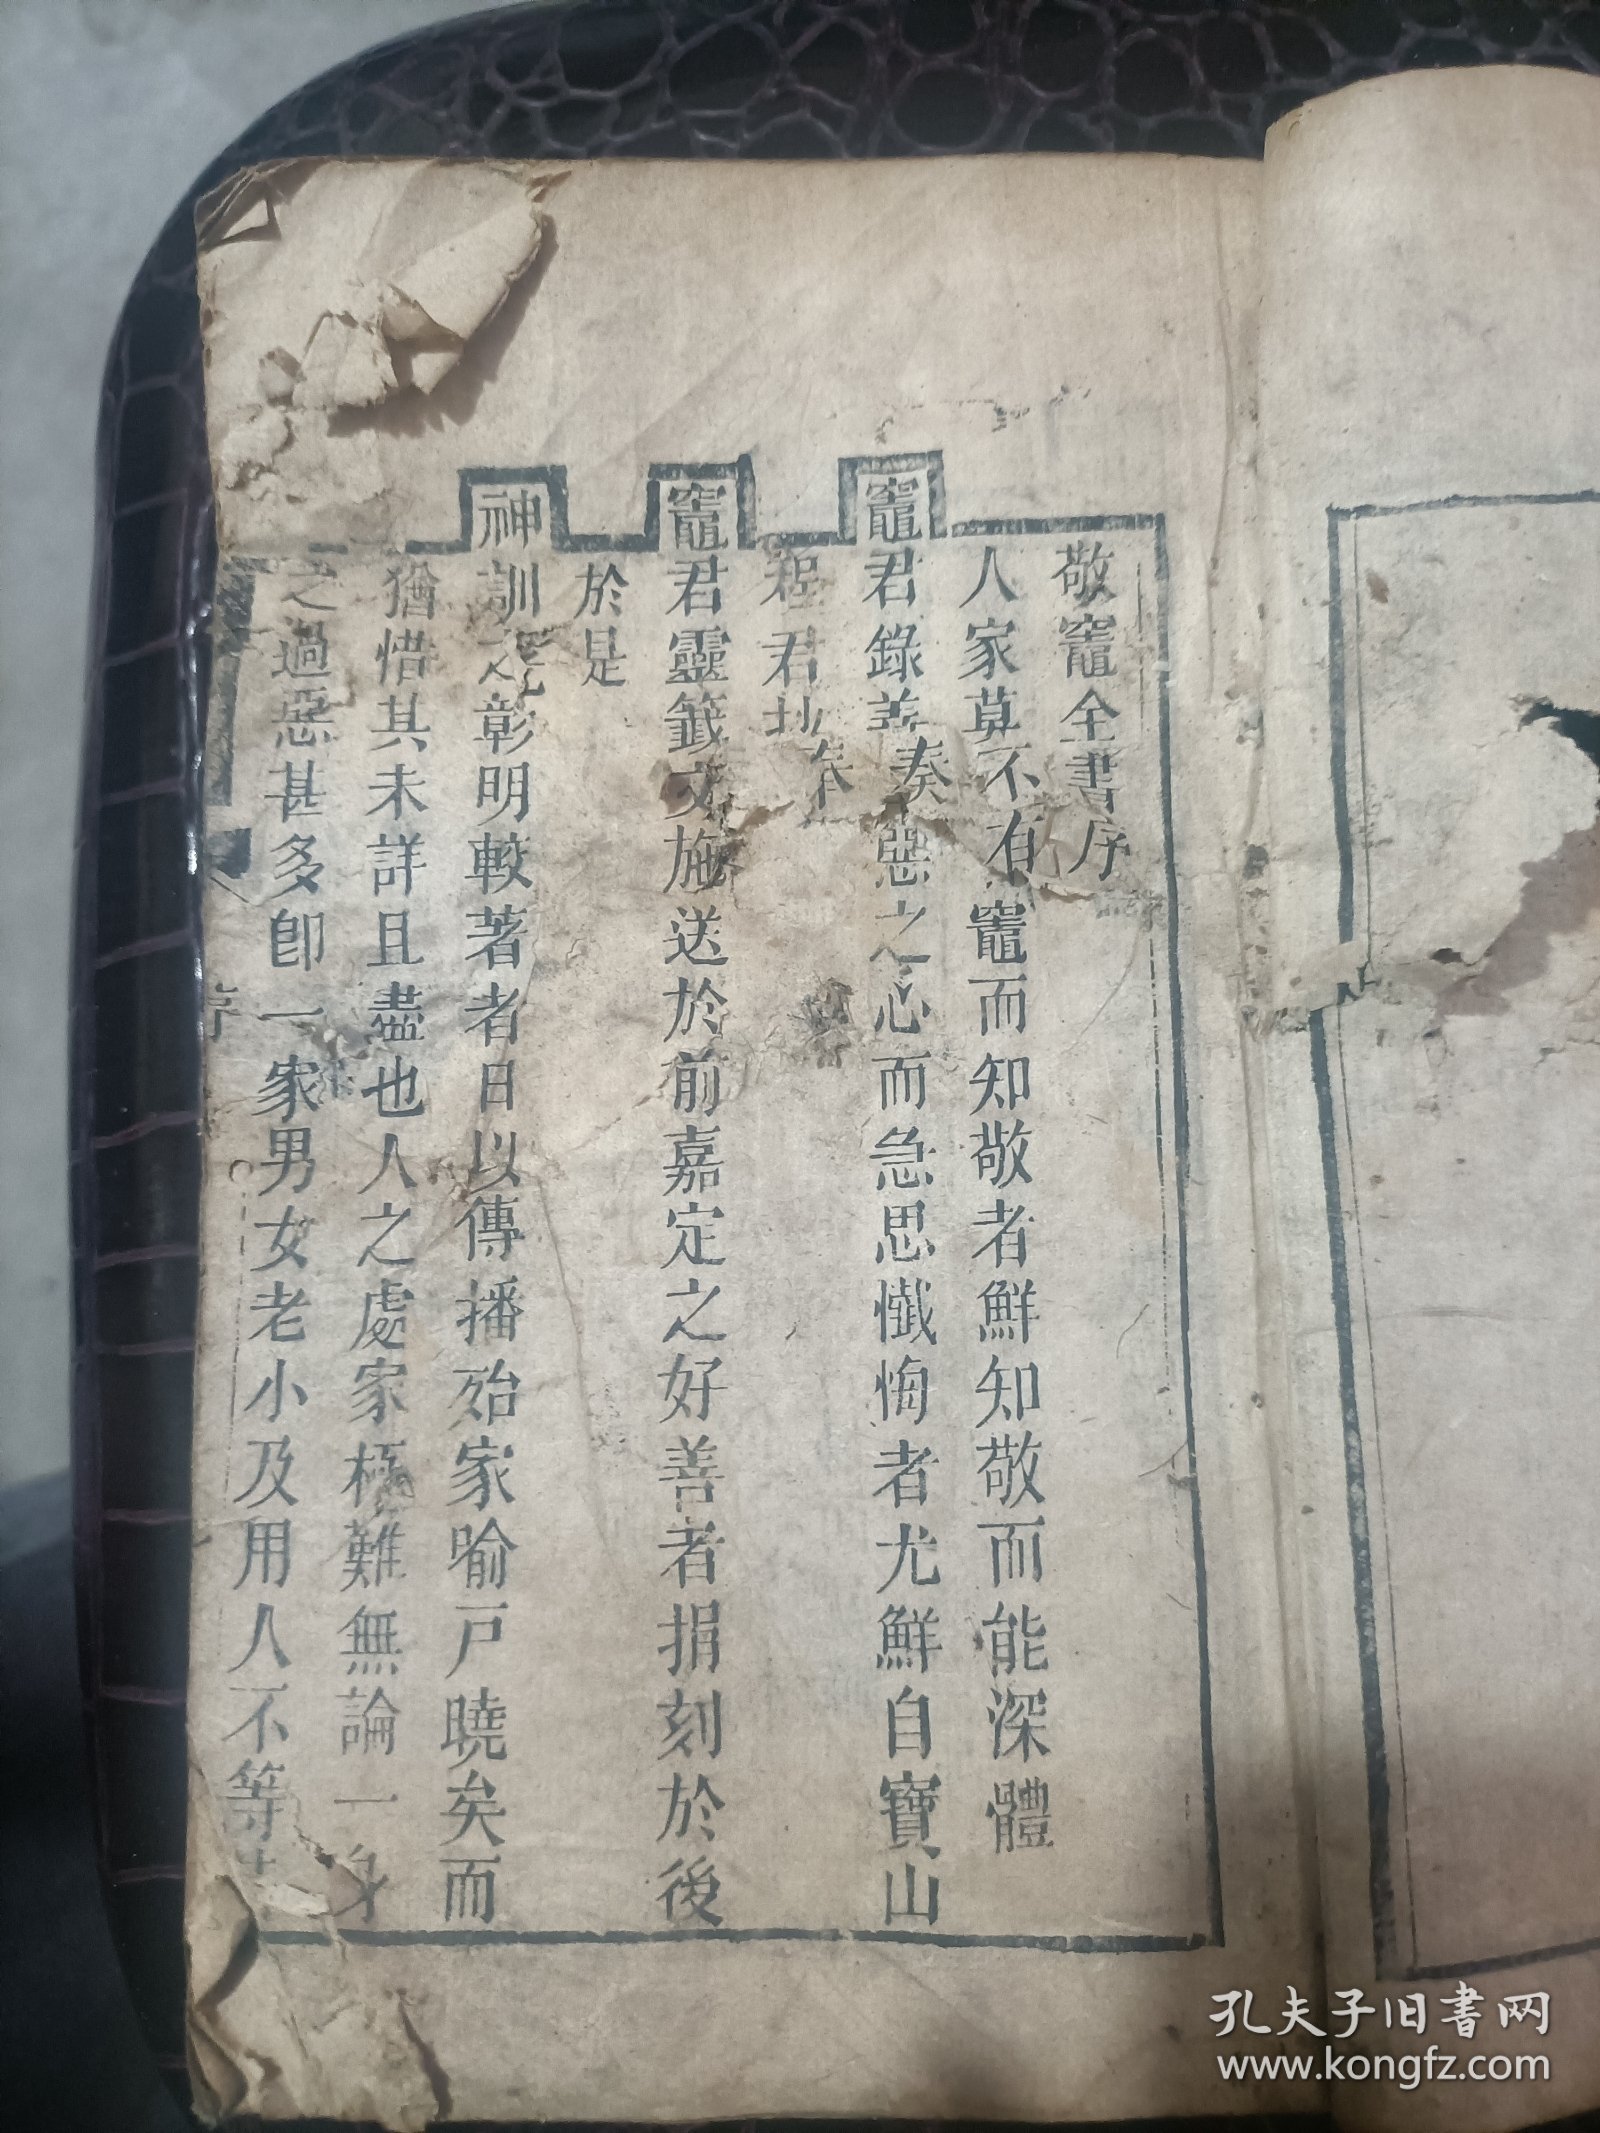 敬竈全書序
人家莫不有竈而知敬者鮮知敬而能深體
竈君錄善奏惡之心而急思懺悔者尤鮮自寶山
程君
竈君靈籤文施送於前嘉定之好善者捐刻於後
於是
神訓之彰明較著者日以傳播殆家喻戸曉矣而
猶惜其未詳且盡也人之處家極難無論一身
之過惡甚多卽一家男女老小及用人不等
序
孔夫子旧书网
www.kongfz.com